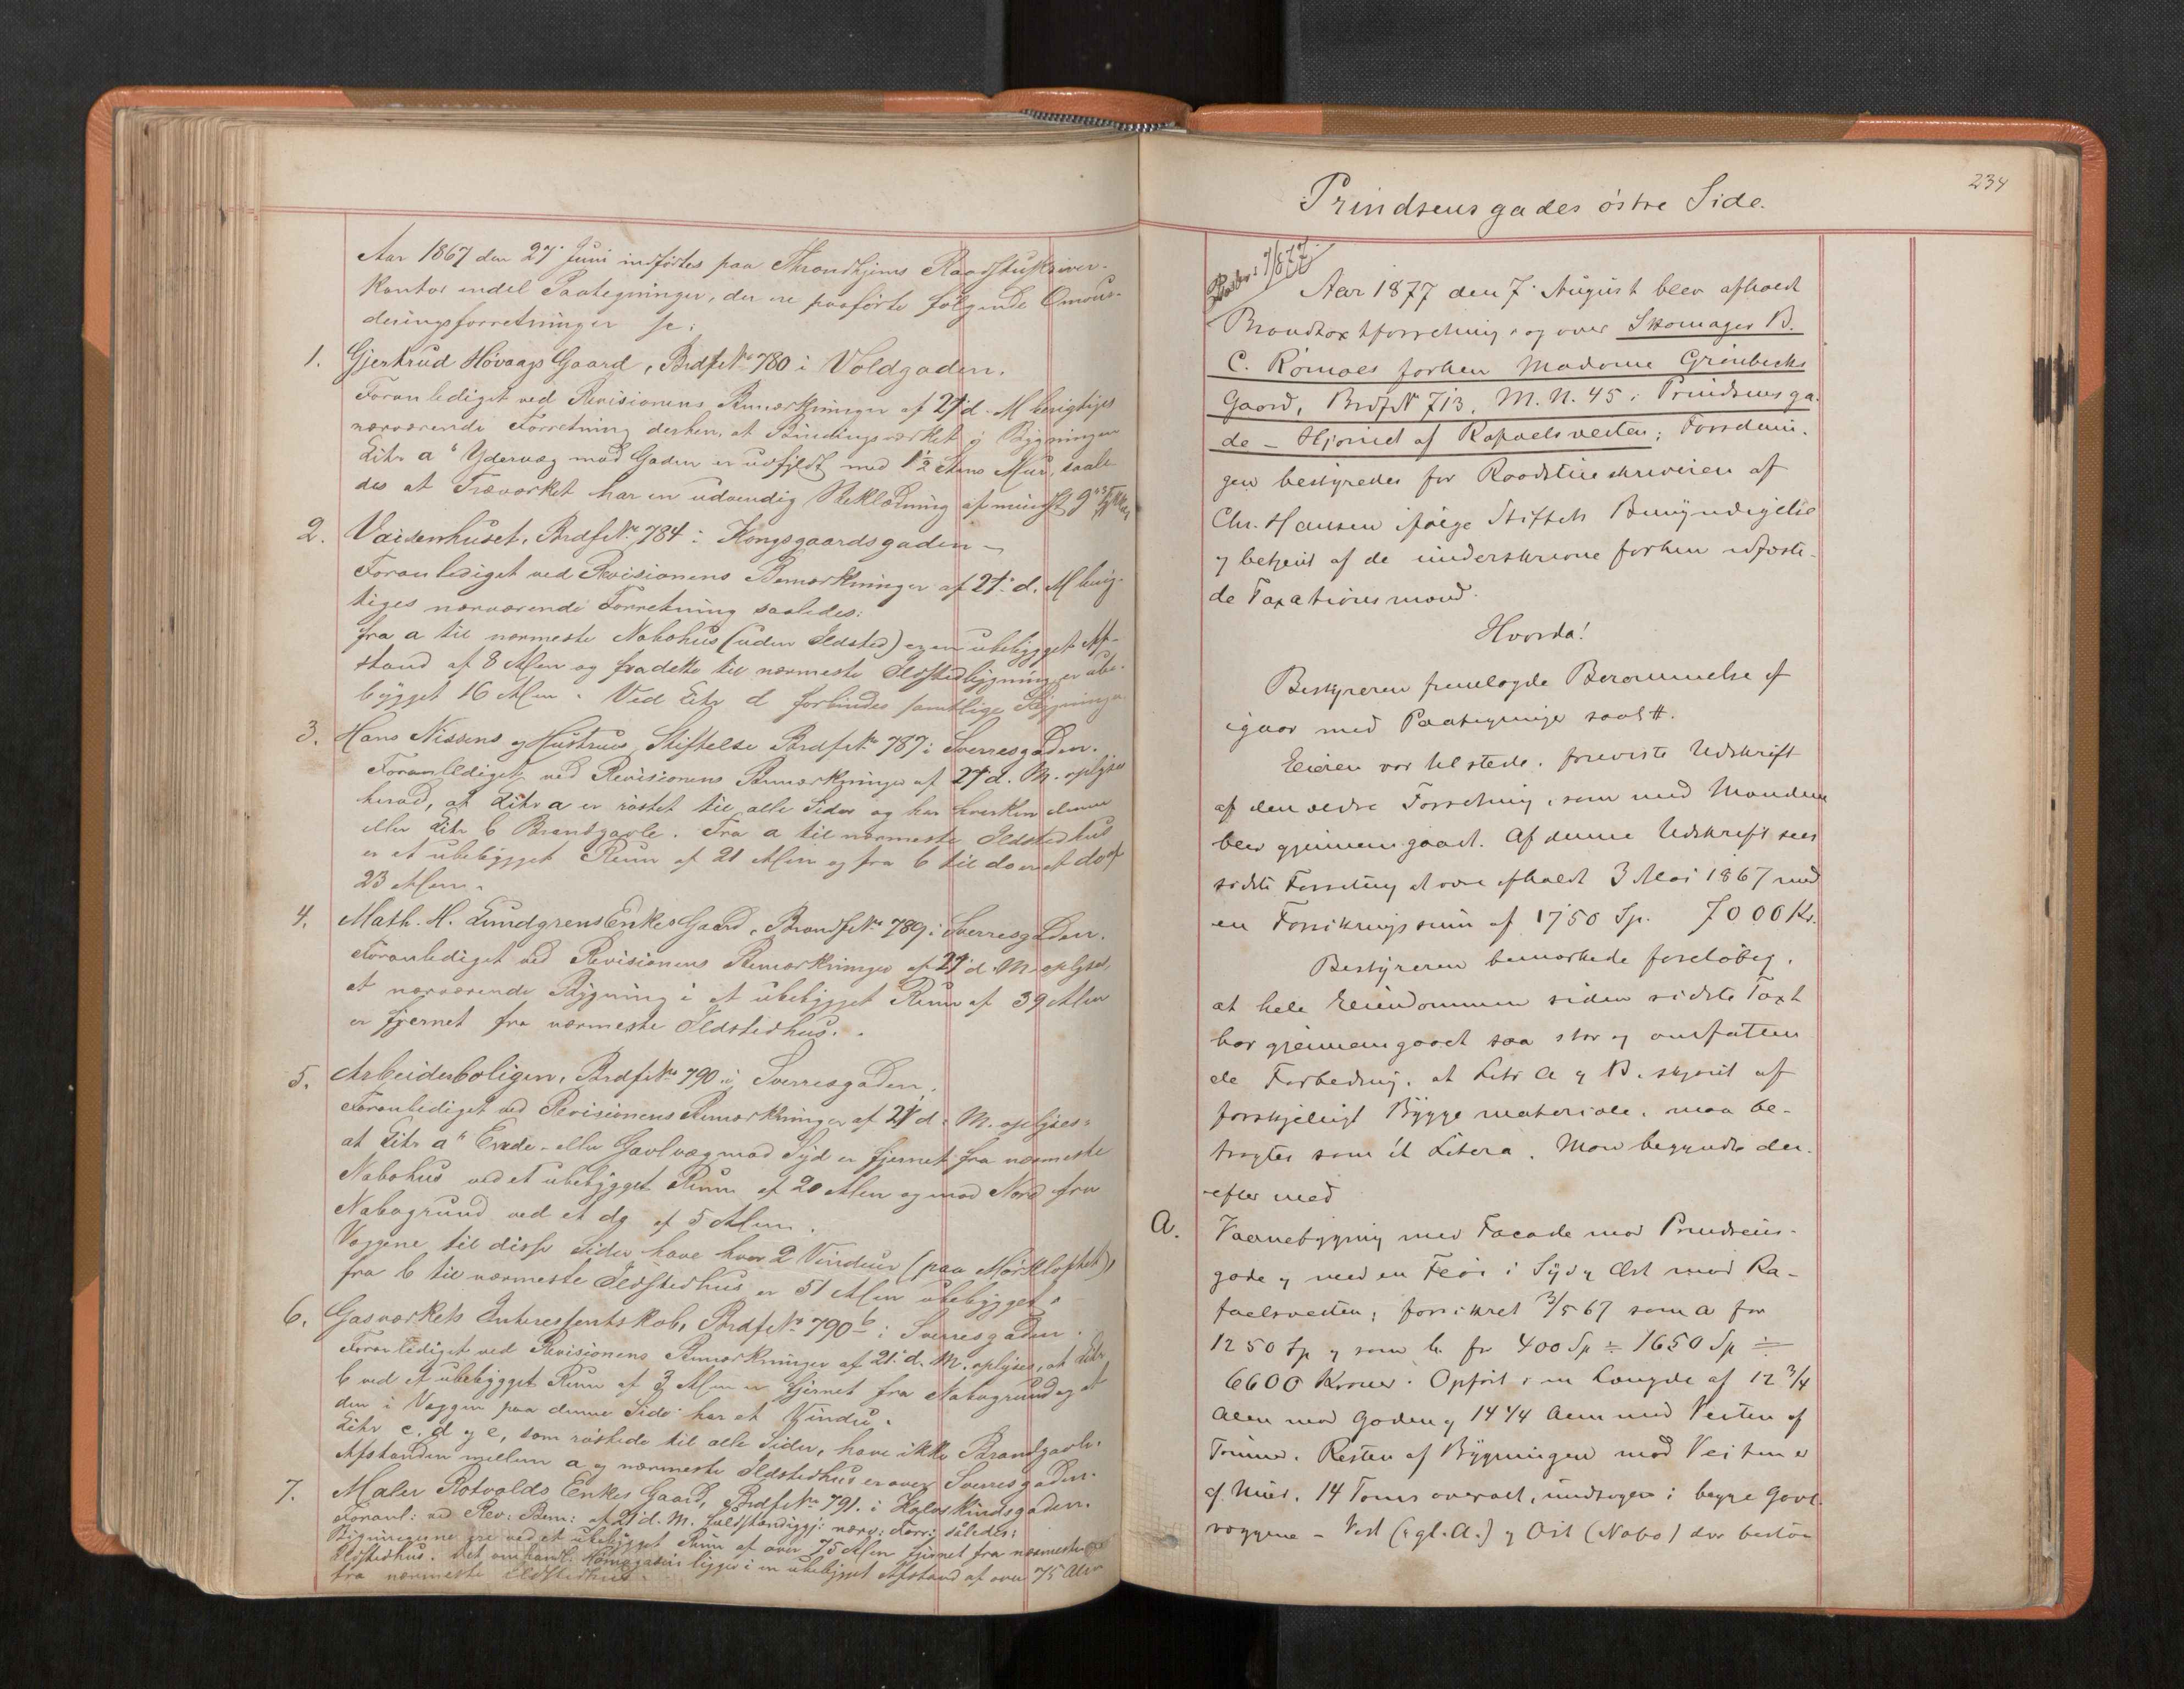 Aar 1867 den 27 Juni indførtes paa Throndhjems Raadstuskriver-
kontor endel Paategninger, der ere paaførte følgende Omvur-
deringsforretninger
1. Gjertrud Høvaags Gaard, Brdf. No 780 i Voldgaden.
Foranlediget ved Revisionens Bemærkninger af 21 d. M. berigtiges
nærværende Forretning derhen, at Bindingsværket i Bygningen
Litr a's Ydervæg mod Gaden er udfyldt med 1½ Stens Mur, saale-
des at Træværket har en udvendig Beklædning af mindst 9"
2. Vaisenhuset, Brdf. No. 784 i Kongsgaardsgaden –
Foranlediget ved Revisionens Bemærkninger af 21. d. M berig-
tiges nærværende Forretning saaledes:
fra a til nærmeste Nabohus (uden Ildsted) er en ubebygget Af-
stand af 8 Alen og fra dette til nærmeste Ildstedbygning er ube-
bygget 16 Alen. Ved Litr d forbindes samtlige Bygninger
3. Hans Nissens og Hustrues Stiftelse Brdf. No 787 i Sverresgaden.
Foranlediget ved Revisionens Bemærkninger af 21 d. M. oplyses
herved, at Litr a er røstet til alle Sider og har hverken denne
eller Litr b Brandgavle. Fra a til nærmeste Ildstedhus
er et ubebygget Rum af 21 Alen og fra b til do er et do af
23 Alen.
4. Math. H. Lundgrens Enkes Gaard, Brandf. No 789 i Sverresgaden.
Foranlediget ved Revisionens Bemærkninger af 21 d. M. oplyses,
at nærværende Bygning i et ubebygget Rum af 39 Alen
er fjernet fra nærmeste Ildstedhus.
5. Arbeiderboligen, Brdf. No 790 i Sverresgaden.
Foranlediget ved Revisionens Bemærkninger af 21 d. M. oplyses
at Litr a's Ende- eller Gavlvæg mod Syd er fjernet fra nærmeste
Nabohus ved et ubebygget Rum af 20 Alen og mod Nord fra
Nabogrund ved et do af 5 Alen.
Væggene til disse Sider have hver 2 Vinduer (paa Mørkloftet),
fra b til nærmeste Ildstedhus er 51 Alen ubebygget.
6. Gasværkets Interessentskab, Brdf. No 790 b i Sverresgaden.
Foranlediget ved Revisionens Bemærkninger af 21. d. M. oplyses, at Litr
b ved et ubebygget Rum af 3 Alen er fjernet fra Nabogrund og at
den i Væggen paa denne Side har et Vindu.
Litr c, d og e, som røstede til alle Sider, have ikke Brandgavle.
Afstanden mellem a og nærmeste Ildstedhus er over Sverresgaden.
7. Maler Rotvolds Enkes Gaard, Brdf. No 791. i Hxlaskindsgaden.
Foranl: ved Rev: Bem: af 21 d. M. fuldstændiggj: nærv: Forr: således:
Bygningerne ere ved et ubebygget Rum af over 75 Alen fjernet fra nærmeste
Ildstedhus. Det omhandl. ligger i en ubebygget Afstand af over 75 Alen
fra nærmeste Ildstedhus.
234
Prindsensgades østre Side.
Aar 1877 den 7. August blev afholdt
Brandtaxtforretning og over Skomager B.
C. Römaes forhen Madame Grønbechs
Gaard, Brdf No 713, M. N. 45 i Prindsensga-
de – Hjørnet af Rafaelsveiten; Forretnin-
gen bestyredes for Raadstueskriveren af
Chr. Hansen ifølge Stiftets Bemyndigelse
og betjent af de underskrevne forhen edfæste-
de Taxationsmænd.
Hvorda!
Bestyreren fremlagde Berammelse af
igaar med Paategninger saal#.
Eieren var tilstede, foreviste Udskrift
af den ældre Forretning, som med Mændene
blev gjennemgaaet. Af denne Udskrift sees
sidste Forretning at være afholdt 3 Mai 1867 med
en Forsikringssum af 1750 Sp. 7000 Kr.
Bestyreren bemærkede foreløbig,
at hele Eiendommen siden sidste Taxt
har gjennemgaaet saa stor og omfatten-
de Forbedring, at Litr A og B, skjønt af
forskjelligt Byggemateriale, maa be-
tragtes som ét Litera. Man begyndte der-
efter med
A. Vaanebygning med Facade mod Prindsens-
gade og med en Fløi i Syd og Øst mod Ra-
faelsveiten, forsikret 3/5 67 som a for
1250 Sp og som b. for 400 Sp = 1650 Sp =
6600 Kroner. Opført i en Længde af 12 3/4
Alen mod Gaden og 14 1/4 Alen mod Veiten af
Tømmer. Resten af Bygningen mod Veiten er
af Muur, 14 Toms overalt, undtagen i begge Gavl-
væggene – Vest (gl. A.) og Øst (Nabo) der bestaa